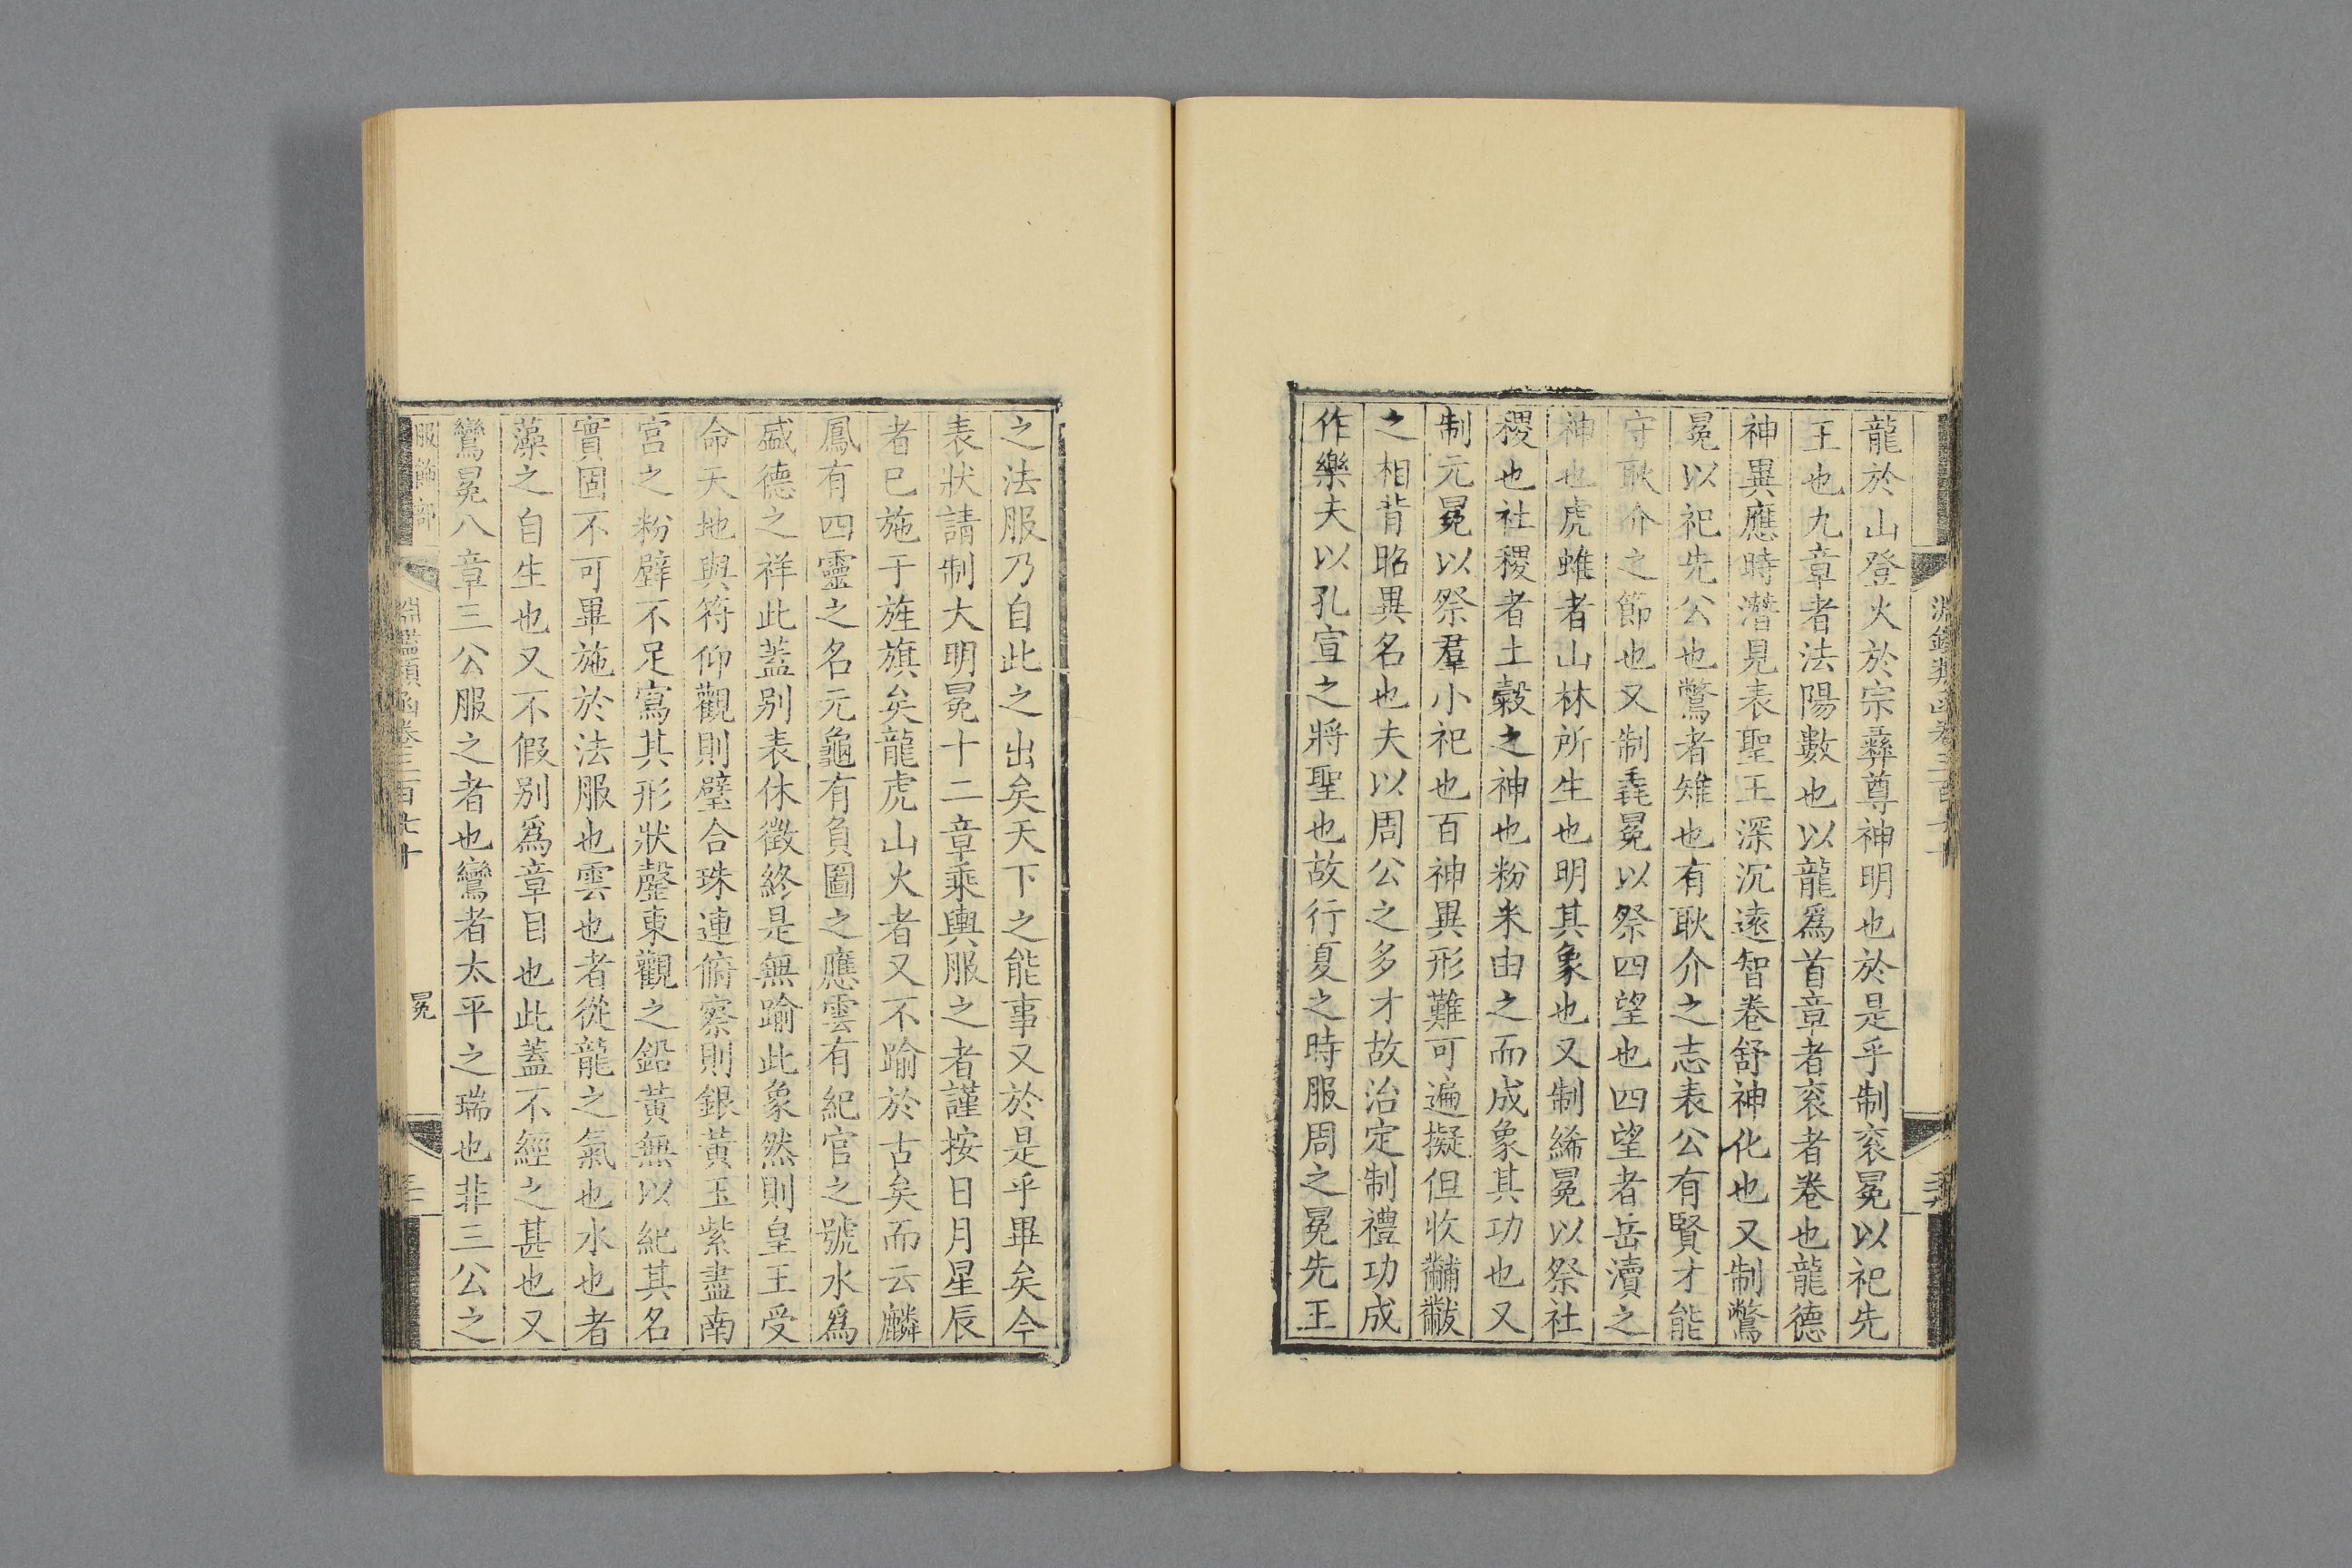 龍於山登火於宗彞尊神明也於是乎制衮冕以祀先
王也九章者法陽數也以龍爲首章者衮者卷也龍德
神異應時潛見表聖王深沉遠智卷舒神化也又制鷩
冕以祀先公也鷩者雉也有耿介之志表公有賢才能
守耿介之節也又制毳冕以祭四望也四望者岳瀆之
神也虎蜼者山林所生也明其象也又制絺冕以祭社
稷也社稷者土穀之神也粉米由之而成象其功也又
制元冕以祭羣小祀也百神異形難可遍擬但收黼黻
之相背昭異名也夫以周公之多才故治定制禮功成
作樂夫以孔宣之將聖也故行夏之時服周之冕先王
之法服乃自此之出矣天下之能事又於是乎畢矣今
表狀請制大明冕十二章乘輿服之者謹按日月星辰
者已施于旌旗矣龍虎山火者又不踰於古矣而云麟
鳳有四靈之名元龜有負圖之應雲有紀官之號水爲
盛德之祥此蓋别表休徵終是無踰此象然則皇王受
命天地與符仰觀則璧合珠連俯察則銀黃玉紫盡南
宮之粉壁不足寫其形狀罄東觀之鉛黃無以紀其名
實固不可畢施於法服也雲也者從龍之氣也水也者
藻之自生也又不假别爲章目也此蓋不經之甚也又
鸞冕八章三公服之者也鸞者太平之瑞也非三公之
服飾部 淵鑑類函卷三百七十 冕